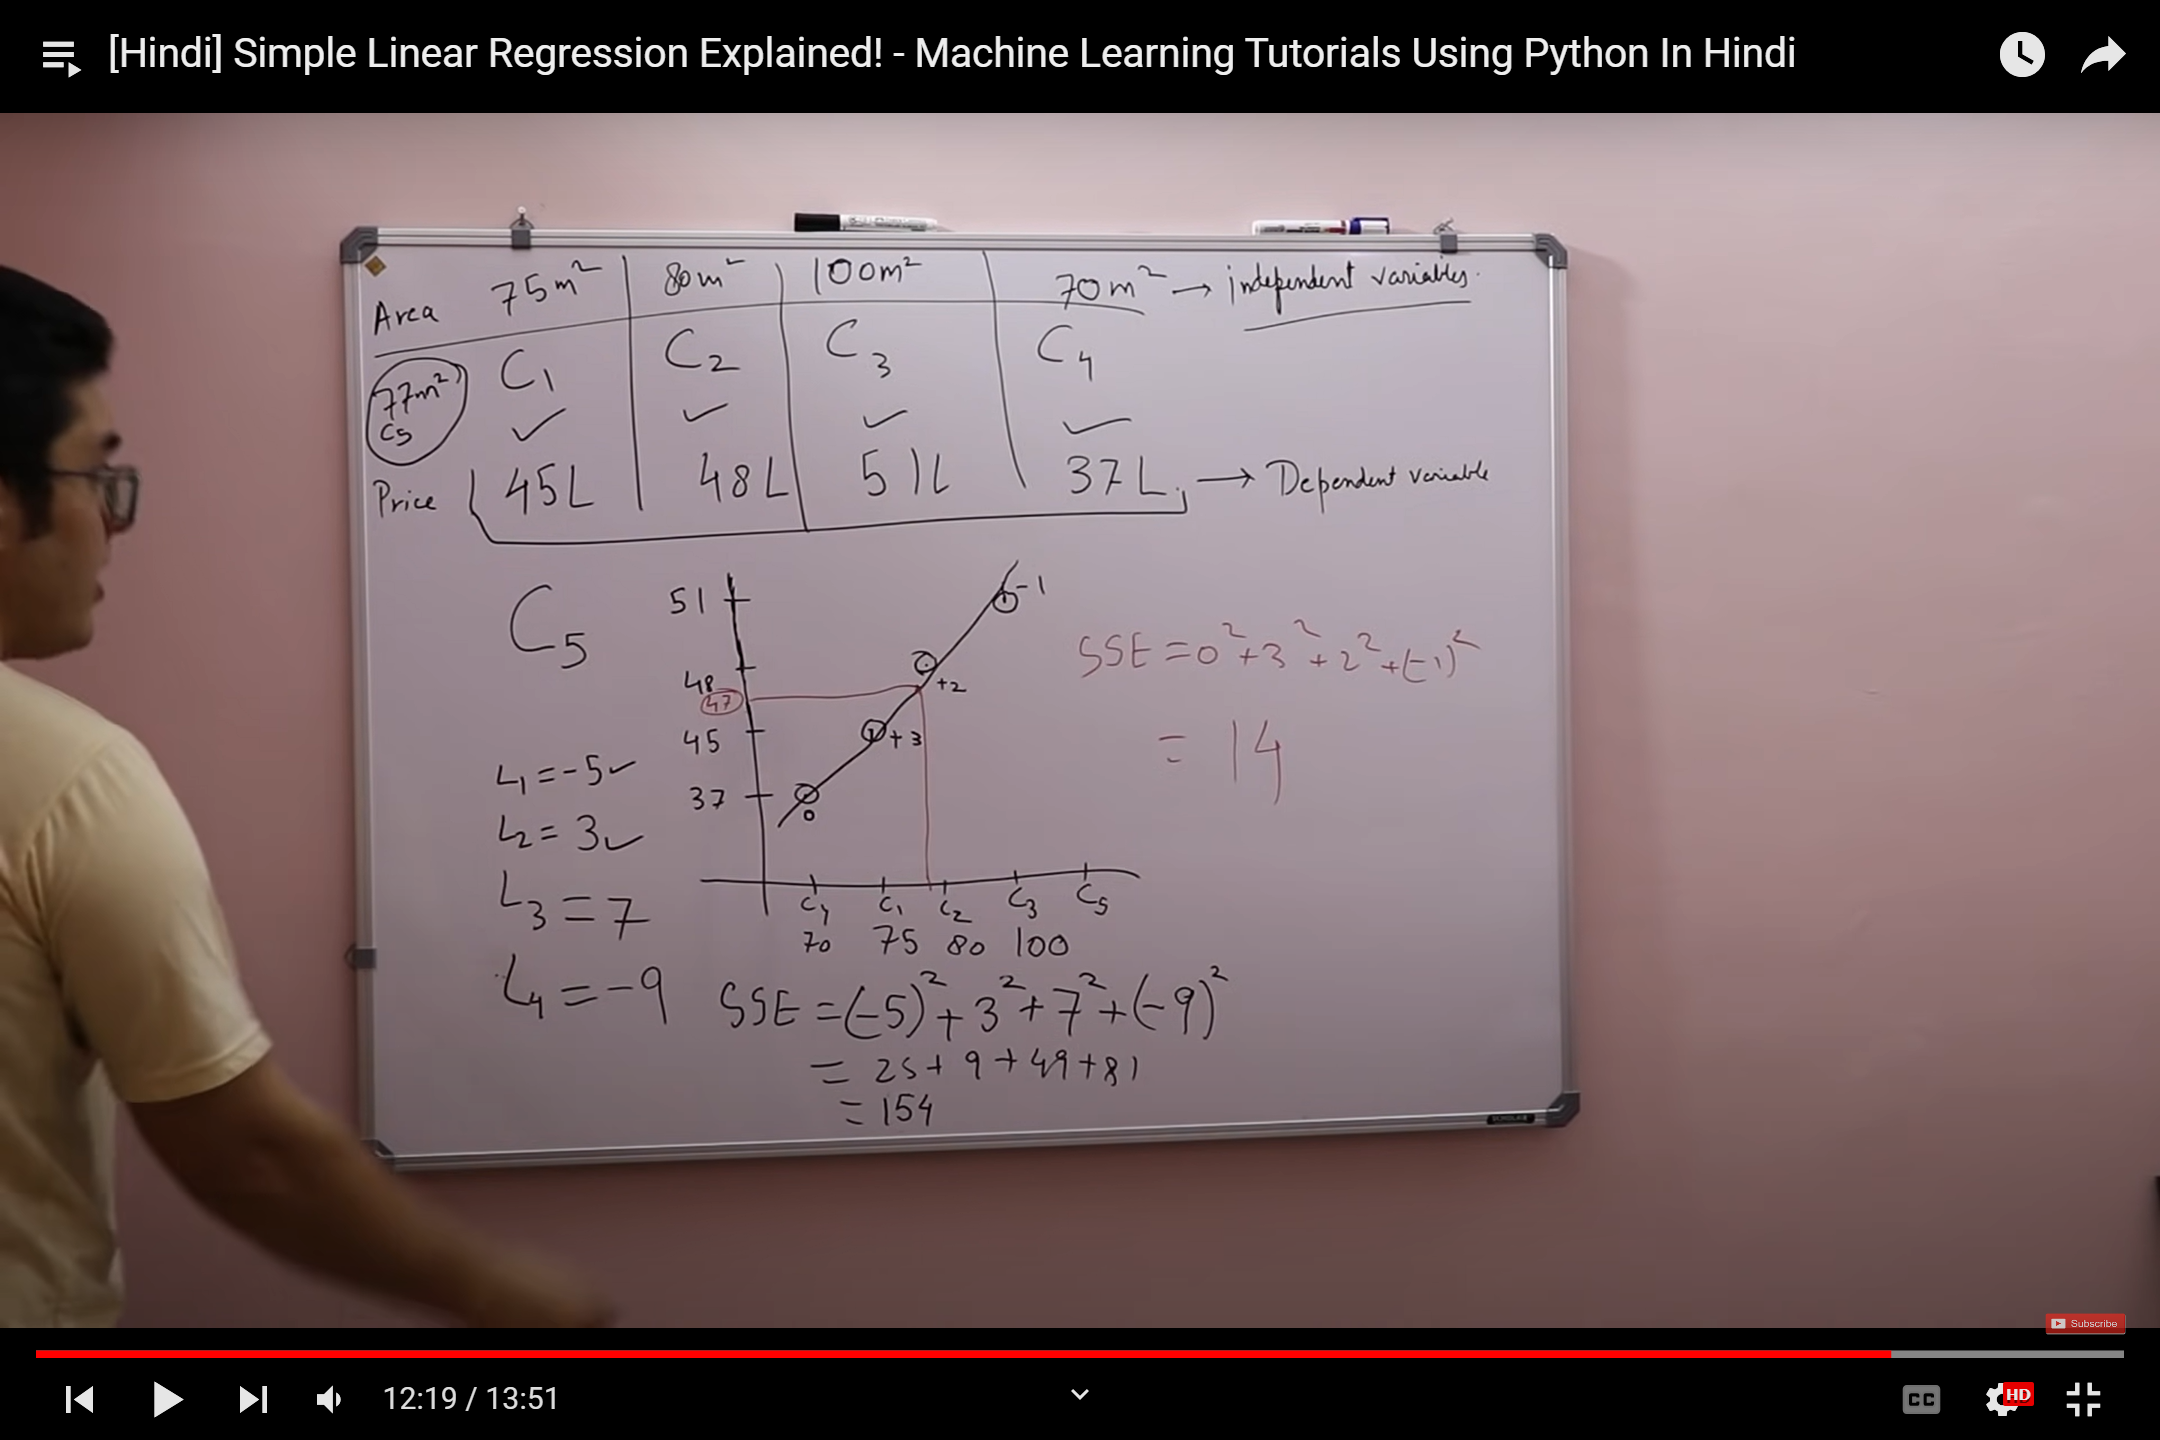 [Hindi] Simple Linear Regression Explained! - Machine Learning Tutorials Using Python In Hindi
Area 75m² 80m² 100m² 70m² → independent variables.
77m²
C5
C1 C2 C3 C4
✓ ✓ ✓ ✓
Price 45L 48L 51L 37L. → Dependent variable
C5
51
48
47
45
37
-1
+2
+3
0
SSE = 0² + 3² + 2² + (-1)²
= 14
L1 = -5 ✓
L2 = 3 ✓
L3 = 7
L4 = -9
C4 C1 C2 C3 C5
70 75 80 100
SSE = (-5)² + 3² + 7² + (-9)²
= 25 + 9 + 49 + 81
= 154
Subscribe
12:19 / 13:51
CC
HD